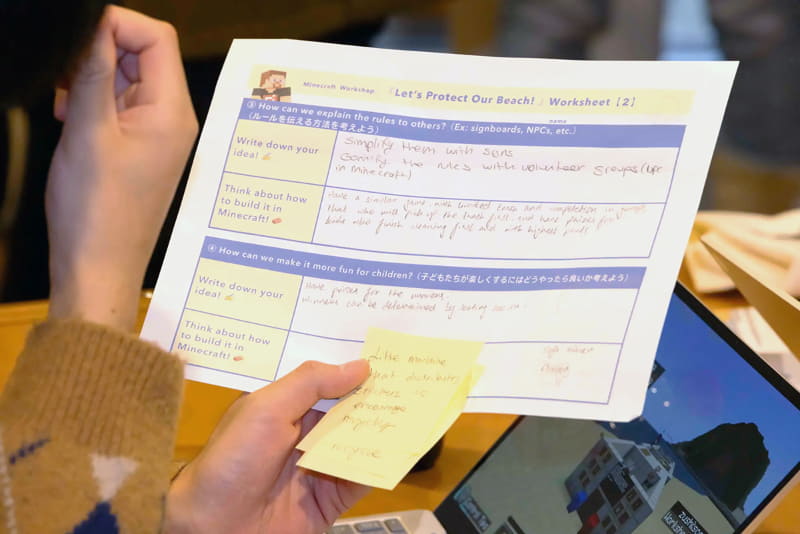 Minecraft Workshop 「Let's Protect Our Beach!」Worksheet【2】
name
③ How can we explain the rules to others? (Ex: signboards, NPCs, etc.)
(ルールを伝える方法を考えよう)
Write down your idea!
Simplify them with signs
the rules with volunteer groups (NPC
in Minecraft)
Think about how to build it in Minecraft!
Have a similar game with limited time and competition in
that who will pick up the trash first and have prizes for
who finish cleaning first and with highest points
④ How can we make it more fun for children? (子どもたちが楽しくするにはどうやったら良いか考えよう)
Write down your idea!
Have prizes for the winners.
Winners can be determined by
Think about how to build it in Minecraft!
Little machine
that distributes
stickers to
encourage
recycle